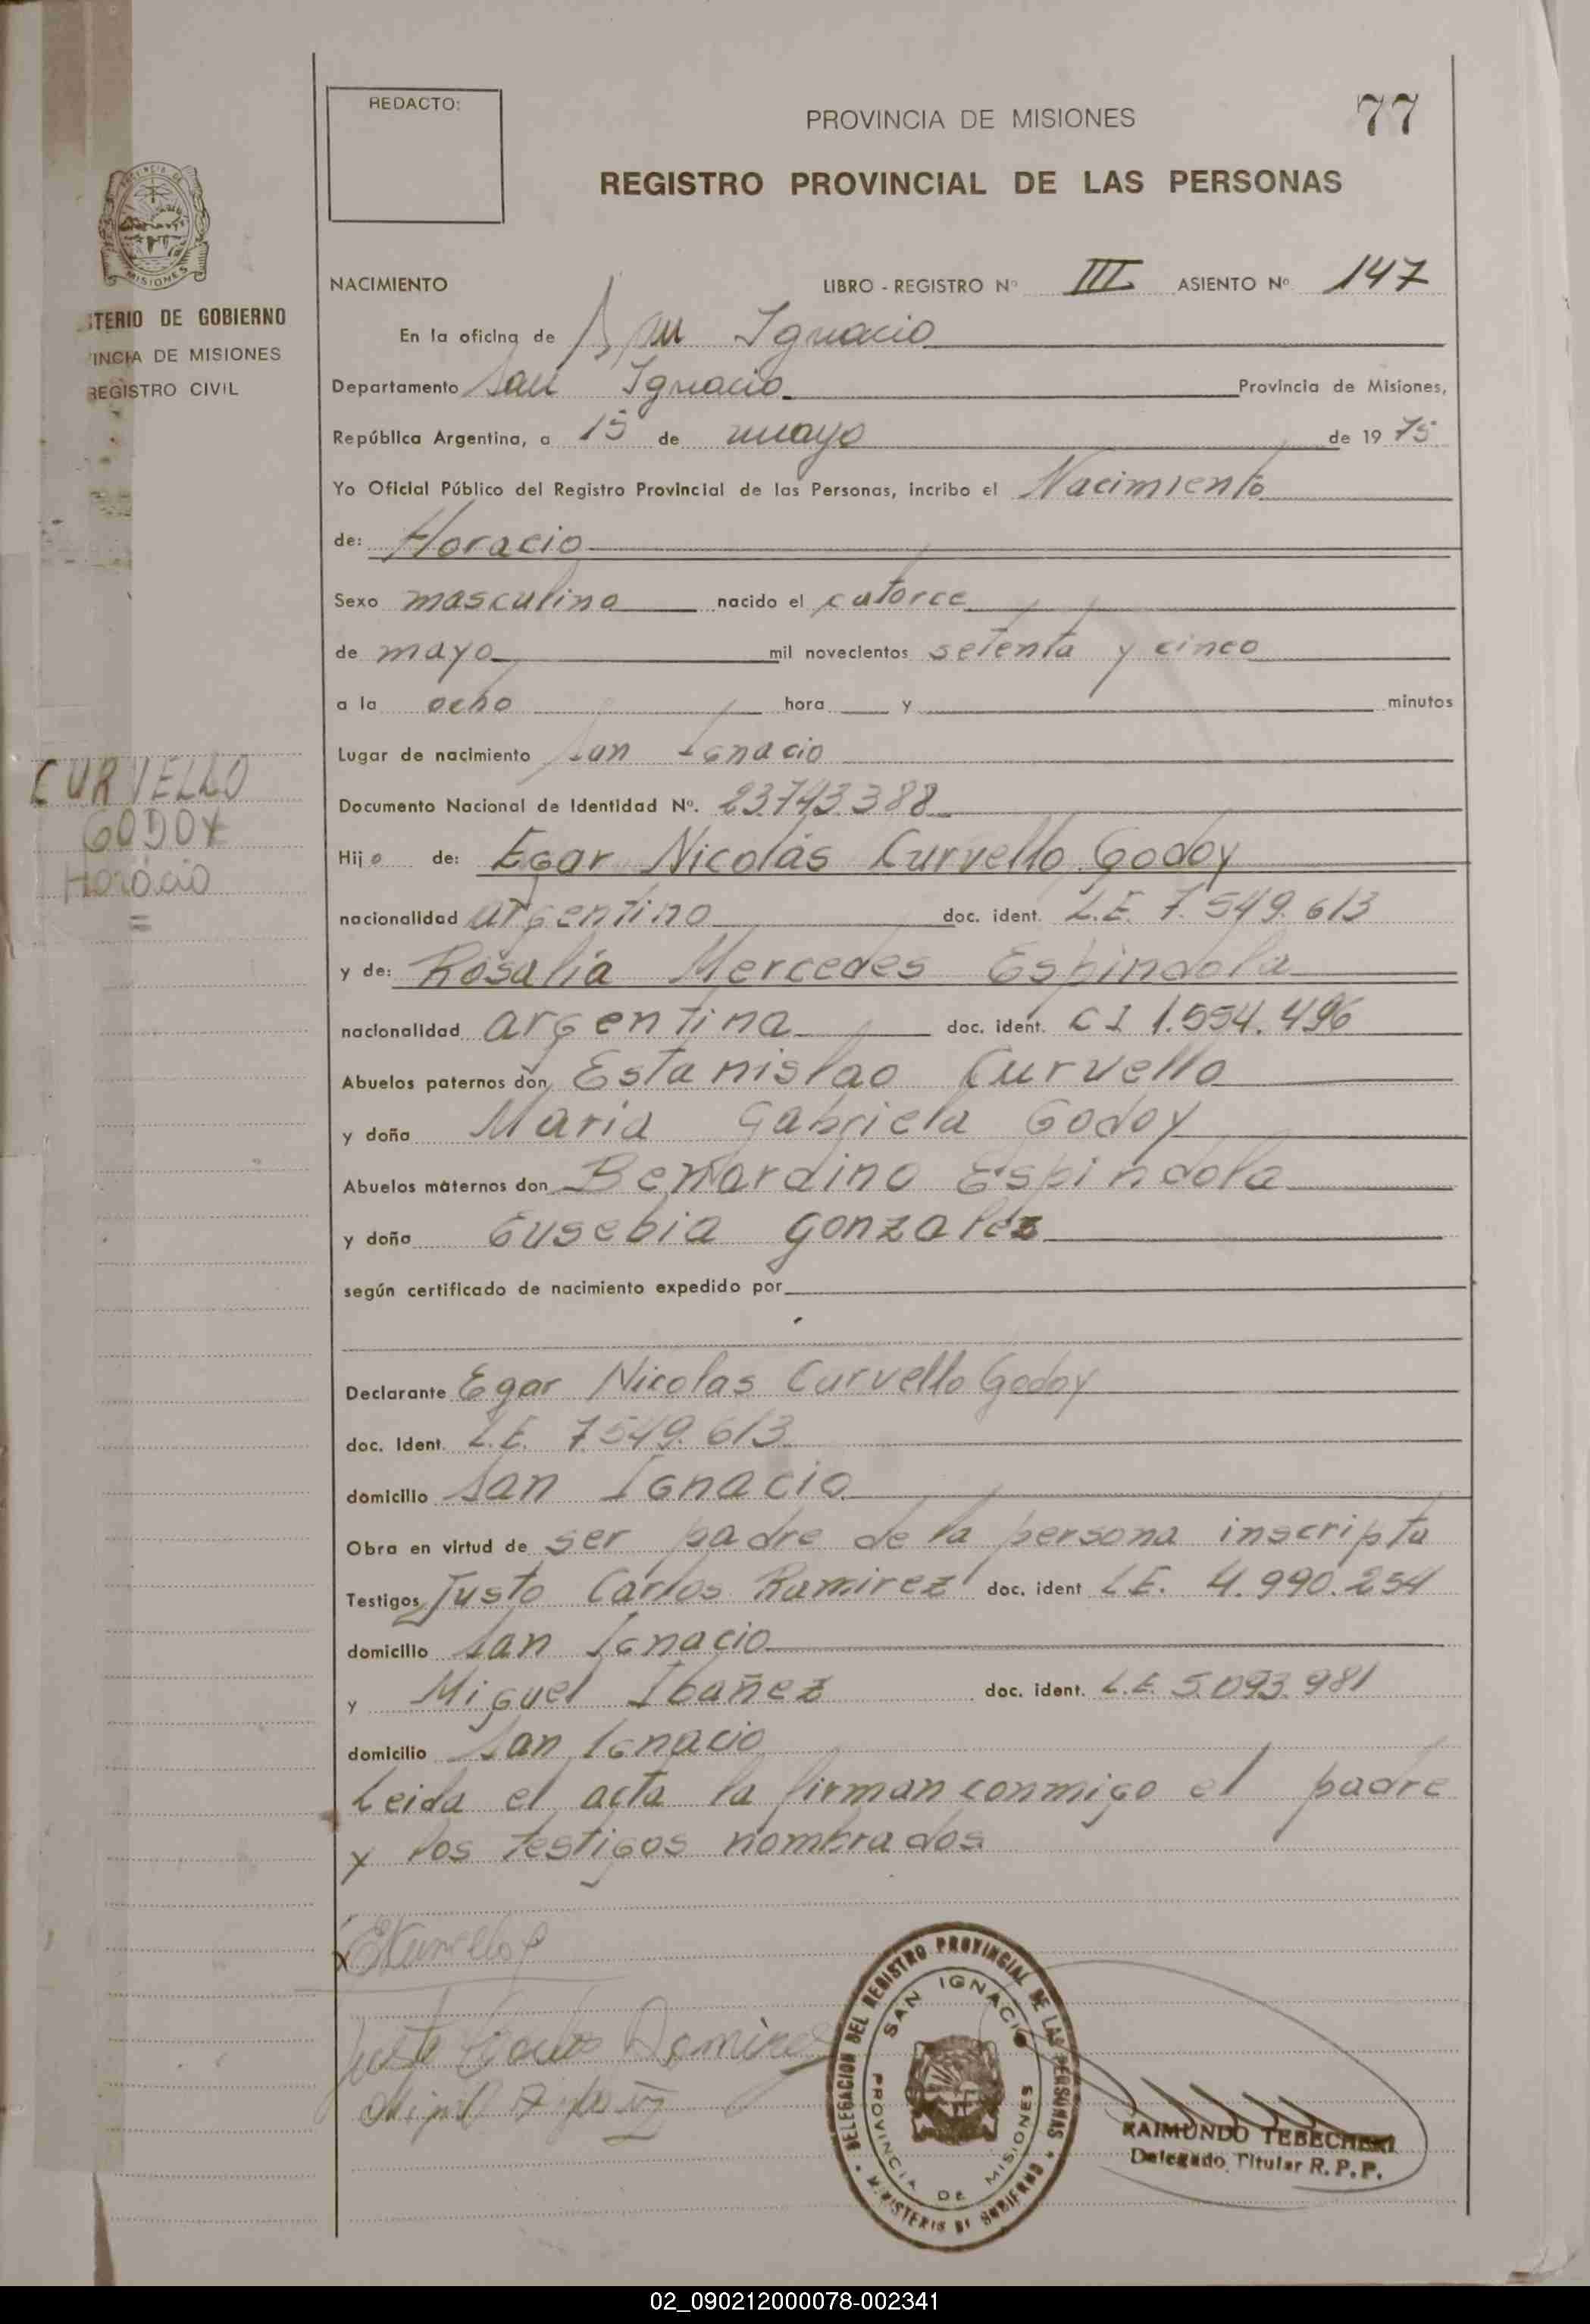 REDACTO:
PROVINCIA DE MISIONES
77
REGISTRO PROVINCIAL DE LAS PERSONAS
MISIONES
STERIO DE GOBIERNO
INCIA DE MISIONES
REGISTRO CIVIL
NACIMIENTO LIBRO - REGISTRO Nº III ASIENTO Nº 147
En la oficina de San Ignacio
Departamento San Ignacio Provincia de Misiones,
República Argentina, a 15 de mayo de 19 75
Yo Oficial Público del Registro Provincial de las Personas, incribo el Nacimiento
de: Horacio
Sexo masculino nacido el catorce
de mayo mil novecientos setenta y cinco
a la ocho hora y minutos
Lugar de nacimiento San Ignacio
Documento Nacional de Identidad Nº. 23.743.388
CURVELLO
GODOY
Horacio
Hijo de: Egar Nicolás Curvello Godoy
nacionalidad argentino doc. ident. L.E. 7.549.613
y de: Rosalía Mercedes Espindola
nacionalidad argentina doc. ident. C I 1.554.496
Abuelos paternos don Estanislao Curvello
y doña María Gabriela Godoy
Abuelos maternos don Bernardino Espindola
y doña Eusebia Gonzalez
según certificado de nacimiento expedido por
Declarante Egar Nicolas Curvello Godoy
doc. Ident. L.E. 7.549.613
domicilio San Ignacio
Obra en virtud de ser padre de la persona inscripta
Testigos Justo Carlos Ramirez doc. ident L.E. 4.990.254
domicilio San Ignacio
y Miguel Ibañez doc. ident. L.E. 5.093.981
domicilio San Ignacio
Leida el acta la firman conmigo el padre
y los testigos nombrados
Justo Carlos Ramirez
DELEGACION DEL REGISTRO PROVINCIAL DE LAS PERSONAS
SAN IGNACIO
PROVINCIA DE MISIONES
MINISTERIO DE GOBIERNO
RAIMUNDO
Delegado Titular R.P.P.
02_090212000078-002341